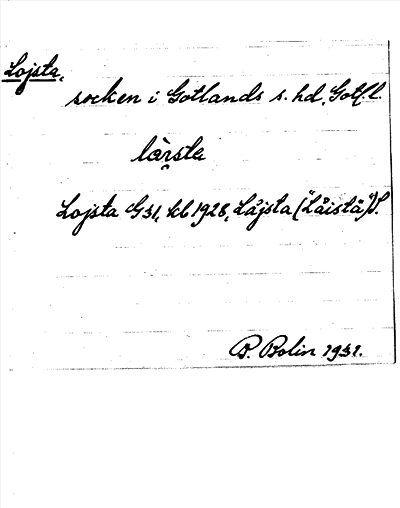 Lojsta,
socken i Gotlands s. hd, Gotl. l.
Lojsta G31, kbl 1928, Låjsta ("Låistä") S.
B. Bolin 1931.